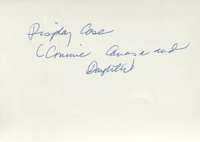 Display Case
(Connie Canosa and
Daughter)